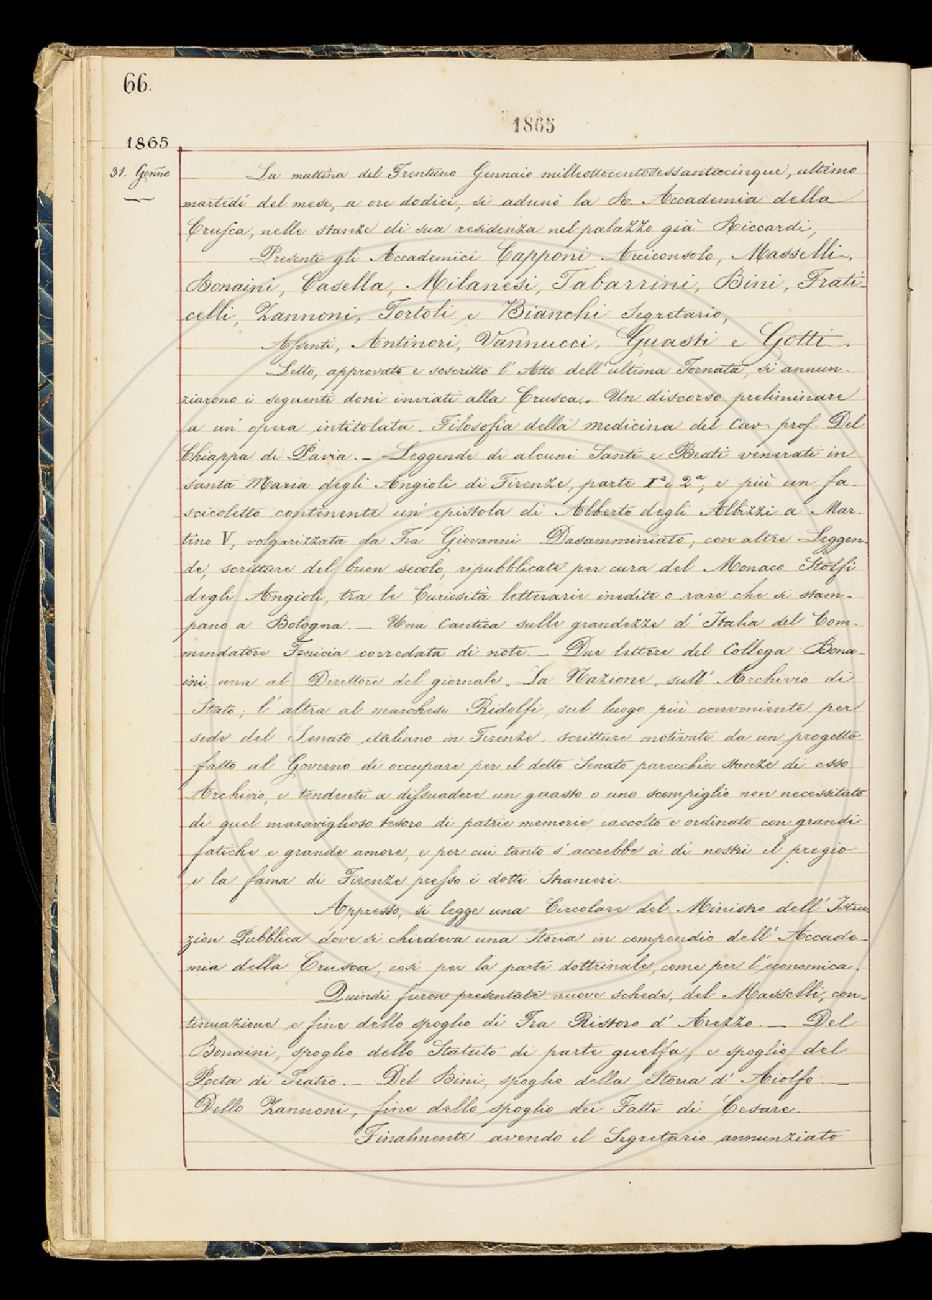 66.
1865
1865
31. Genno
La mattina del Trentuno Gennaio milleottocentosessantacinque, ultimo
martedì del mese, a ore dodici, si adunò la R. Accademia della
Crusca, nelle stanze di sua residenza nel palazzo già Riccardi,
Presenti gli Accademici Capponi Arciconsolo, Masselli,
Bonaini, Casella, Milanesi, Tabarrini, Bini, Frati-
celli, Zannoni, Tortoli e Bianchi Segretario,
Assenti, Antinori, Vannucci, Guasti e Gotti.
Letto, approvato e soscritto l'Atto dell'ultima Tornata, si annun-
ziarono i seguenti doni inviati alla Crusca. Un discorso preliminare
a un'opera intitolata Filosofia della medicina del Cav. prof. Del
Chiappa di Pavia. — Leggende di alcuni Santi e Beati venerati in
santa Maria degli Angioli di Firenze, parte 1ª e 2ª, e più un fa-
scicoletto contenente un epistola di Alberto degli Albizzi a Mar-
tino V, volgarizzata da Fra Giovanni Dasamminiato, con altre Leggen-
de, scritture del buon secolo, ripubblicate per cura del Monaco Stolfi
degli Angioli, tra le Curiosità letterarie inedite o rare che si stam-
pano a Bologna. — Una Cantica sulle grandezze d'Italia del Com-
mendatore Fenicia corredata di note — Due lettere del Collega Bona-
ini, una al Direttore del giornale, La Nazione, sull'Archivio di
Stato; l'altra al marchese Ridolfi, sul luogo più conveniente per
sede del Senato italiano in Firenze. scritture motivate da un progetto
fatto al Governo di occupare per il detto Senato parecchie stanze di esso
Archivio, e tendenti a dissuadere un guasto o uno scompiglio non necessitato
di quel maraviglioso tesoro di patrie memorie raccolto e ordinato con grandi
fatiche e grande amore, e per cui tanto s'accrebbe a' dì nostri il pregio
e la fama di Firenze presso i dotti stranieri.
Appresso, si legge una Circolare del Ministro dell'Istru-
zion Pubblica dove si chiedeva una Storia in compendio dell'Accade-
mia della Crusca, così per la parte dottrinale, come per l'economica.
Quindi furon presentate nuove schede, del Masselli, con-
tinuazione e fine dello spoglio di Fra Ristoro d'Arezzo. — Del
Bonaini, spoglio dello Statuto di parte guelfa, e spoglio del
Pocta di Teatro. — Del Bini, spoglio della Storia d'Aiolfo. —
Dello Zannoni, fine dello spoglio dei Fatti di Cesare.
Finalmente avendo il Segretario annunziato